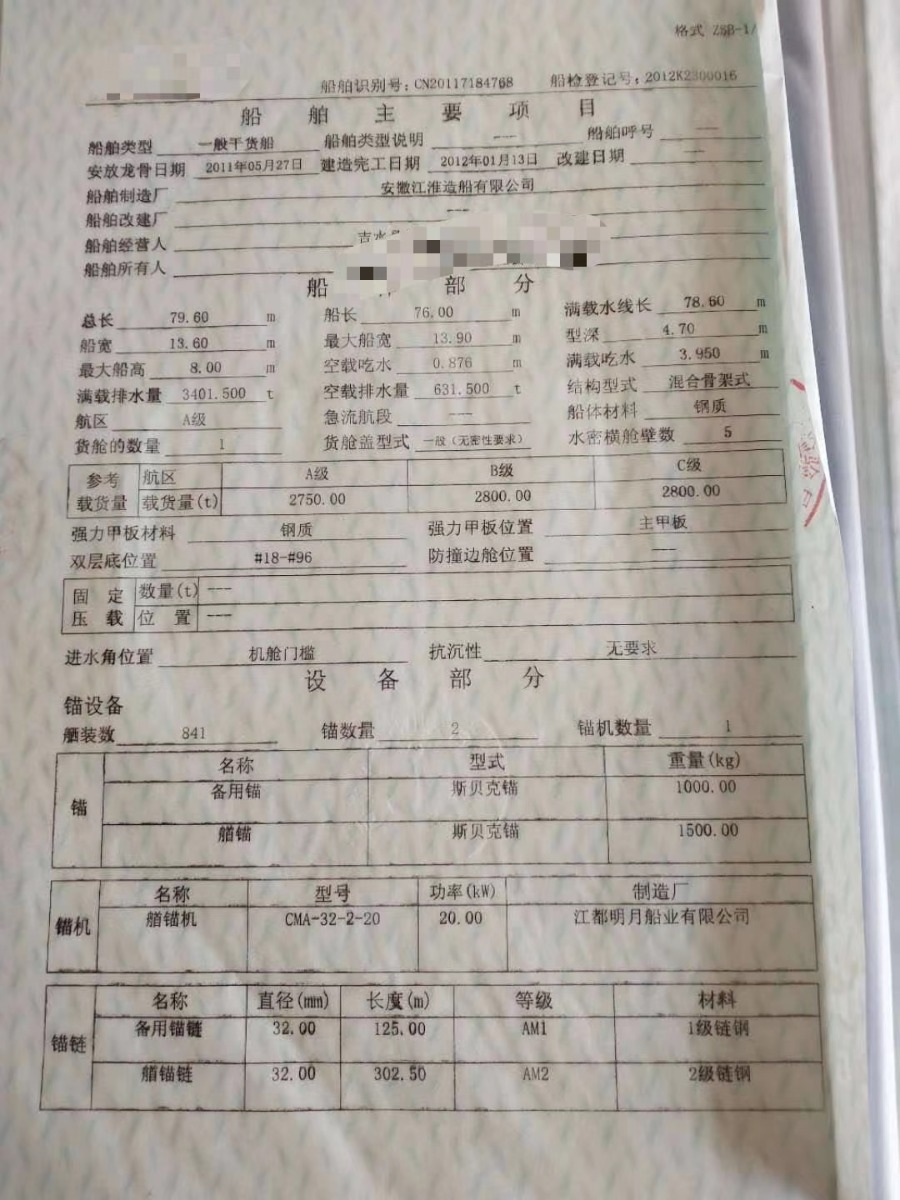 格式 ZSB-1/
船舶识别号：CN20117184768 船检登记号：2012K2300016
船舶主要项目
船舶类型 一般干货船 船舶类型说明 --- 船舶呼号 ---
安放龙骨日期 2011年05月27日 建造完工日期 2012年01月13日 改建日期 ---
船舶制造厂 安徽江淮造船有限公司
船舶改建厂 ---
船舶经营人 吉水
船舶所有人
船 部分
总长 79.60 m 船长 76.00 m 满载水线长 78.60 m
船宽 13.60 m 最大船宽 13.90 m 型深 4.70 m
最大船高 8.00 m 空载吃水 0.876 m 满载吃水 3.950 m
满载排水量 3401.500 t 空载排水量 631.500 t 结构型式 混合骨架式
航区 A级 急流航段 --- 船体材料 钢质
货舱的数量 1 货舱盖型式 一般（无密性要求） 水密横舱壁数 5
参考载货量 航区 A级 B级 C级
载货量(t) 2750.00 2800.00 2800.00
强力甲板材料 钢质 强力甲板位置 主甲板
双层底位置 #18-#96 防撞边舱位置 ---
固定压载 数量(t) ---
位置 ---
进水角位置 机舱门槛 抗沉性 无要求
设备部分
锚设备
舾装数 841 锚数量 2 锚机数量 1
锚 名称 型式 重量(kg)
备用锚 斯贝克锚 1000.00
艏锚 斯贝克锚 1500.00
锚机 名称 型号 功率(kW) 制造厂
艏锚机 CMA-32-2-20 20.00 江都明月船业有限公司
锚链 名称 直径(mm) 长度(m) 等级 材料
备用锚链 32.00 125.00 AM1 1级链钢
艏锚链 32.00 302.50 AM2 2级链钢